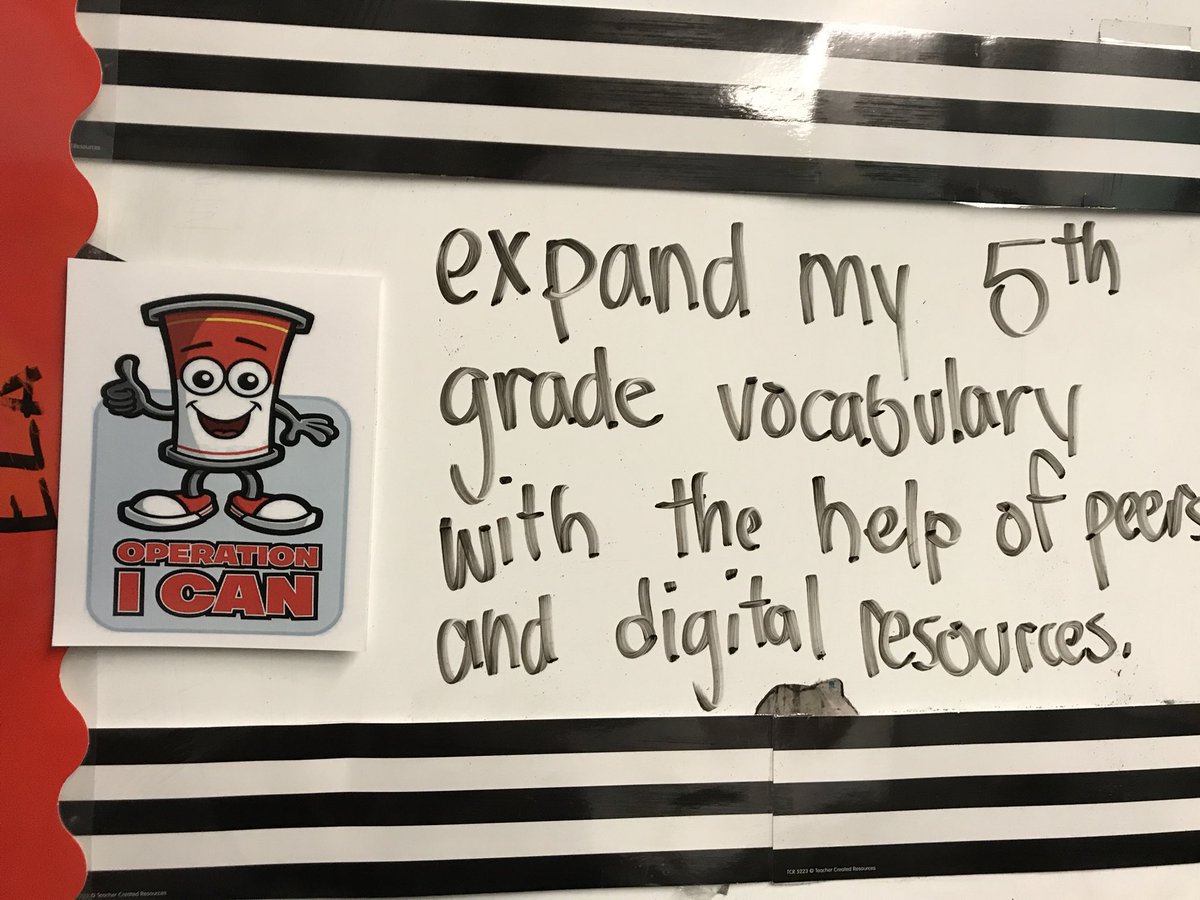 Resources
ELA
OPERATION
I CAN
expand my 5th
grade vocabulary
with the help of peers
and digital resources.
© Teacher Created Resources
TCR 5223 © Teacher Created Resources